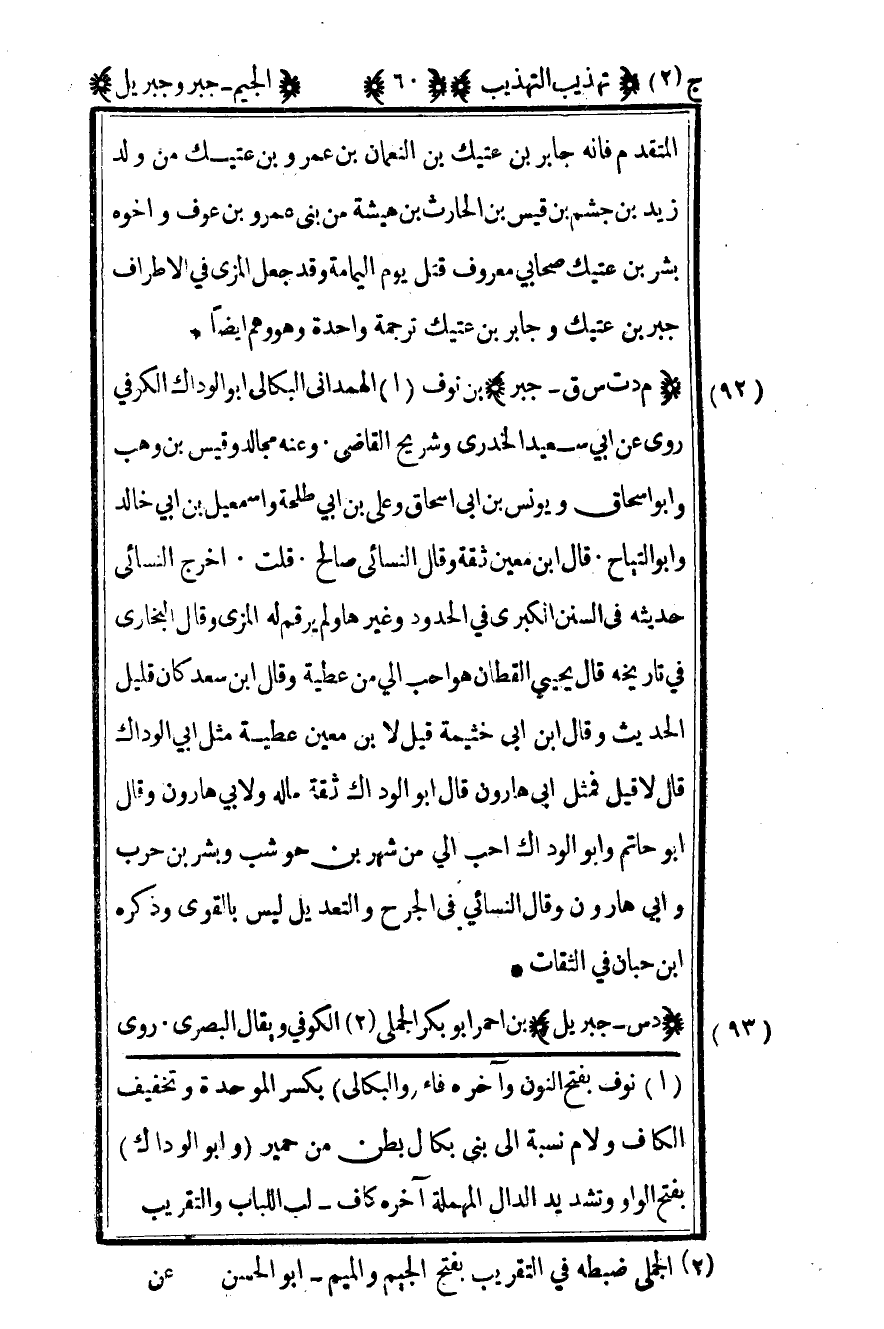 ج (٢) ﴿ تهذيب التهذيب ﴾ ﴿ ٦٠ ﴾ ﴿ الجيم - جبر وجبريل ﴾
المتقدم فانه جابر بن عتيك بن النعمان بن عمرو بن عتيك من ولد
زيد بن جشم بن قيس بن الحارث بن هيشة من بنى عمرو بن عوف واخوه
بشر بن عتيك صحابي معروف قتل يوم اليمامة وقد جعل المزى في الاطراف
جبر بن عتيك و جابر بن عتيك ترجمة واحدة وهو وهم ايضاً *
(٩٢) ﴿ م د ت س ق - جبر ﴾ بن نوف (١) الهمدانى البكالى ابو الوداك الكرفي
روى عن ابي سعيد الخدرى وشريح القاضى . وعنه مجالد وقيس بن وهب
وابو اسحاق و يونس بن ابى اسحاق وعلى بن ابي طلحة واسمعيل بن ابي خالد
وابو التياح . قال ابن معين ثقة وقال النسائى صالح . قلت . اخرج النسائى
حديثه فى السنن الكبرى في الحدود وغيرها ولم يرقم له المزى وقال البخارى
في تاريخه قال يحيى القطان هو احب الي من عطية وقال ابن سعد كان قليل
الحديث وقال ابن ابى خثيمة قيل لا بن معين عطية مثل ابي الوداك
قال لا قيل فمثل ابى هارون قال ابو الوداك ثقة ماله ولابي هارون وقال
ابو حاتم وابو الوداك احب الي من شهر بن حوشب وبشر بن حرب
و ابي هارون وقال النسائي فى الجرح والتعديل ليس بالقوى وذكره
ابن حبان في الثقات *
(٩٣) ﴿ د س - جبريل ﴾ بن احمر ابو بكر الجملى (٢) الكوفي ويقال البصرى . روى
(١) نوف بفتح النون وآخره فاء (والبكالى) بكسر الموحدة وتخفيف
الكاف ولام نسبة الى بني بكال بطن من حمير (و ابو الوداك)
بفتح الواو وتشديد الدال المهملة آخره كاف - لب اللباب والتقريب
(٢) الجملى ضبطه في التقريب بفتح الجيم والميم - ابو الحسن عن